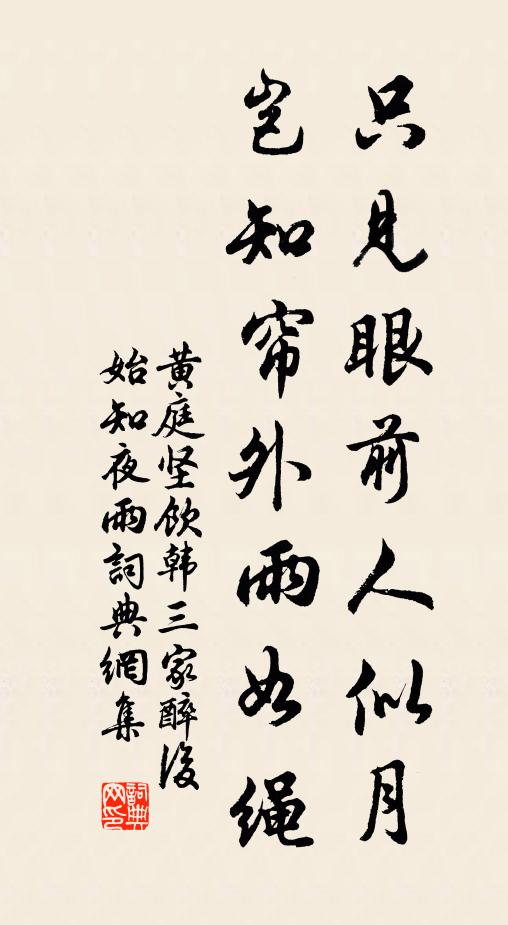 只见眼前人似月
岂知帘外雨如绳
黄庭坚饮韩三家醉后
始知夜雨詞典網集
詞典
网印